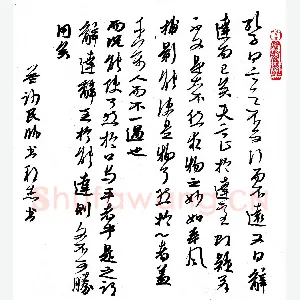 孔子曰言之不文行而不遠又曰辭
達而已矣夫言止於達意則疑若
不文是大不然求物之妙如系風
捕影能使是物了然於心者蓋
千萬人而不一遇也
而況能使了然於口與手者乎是之謂
辭達辭至於能達則文不可勝
用矣
答謝民師書